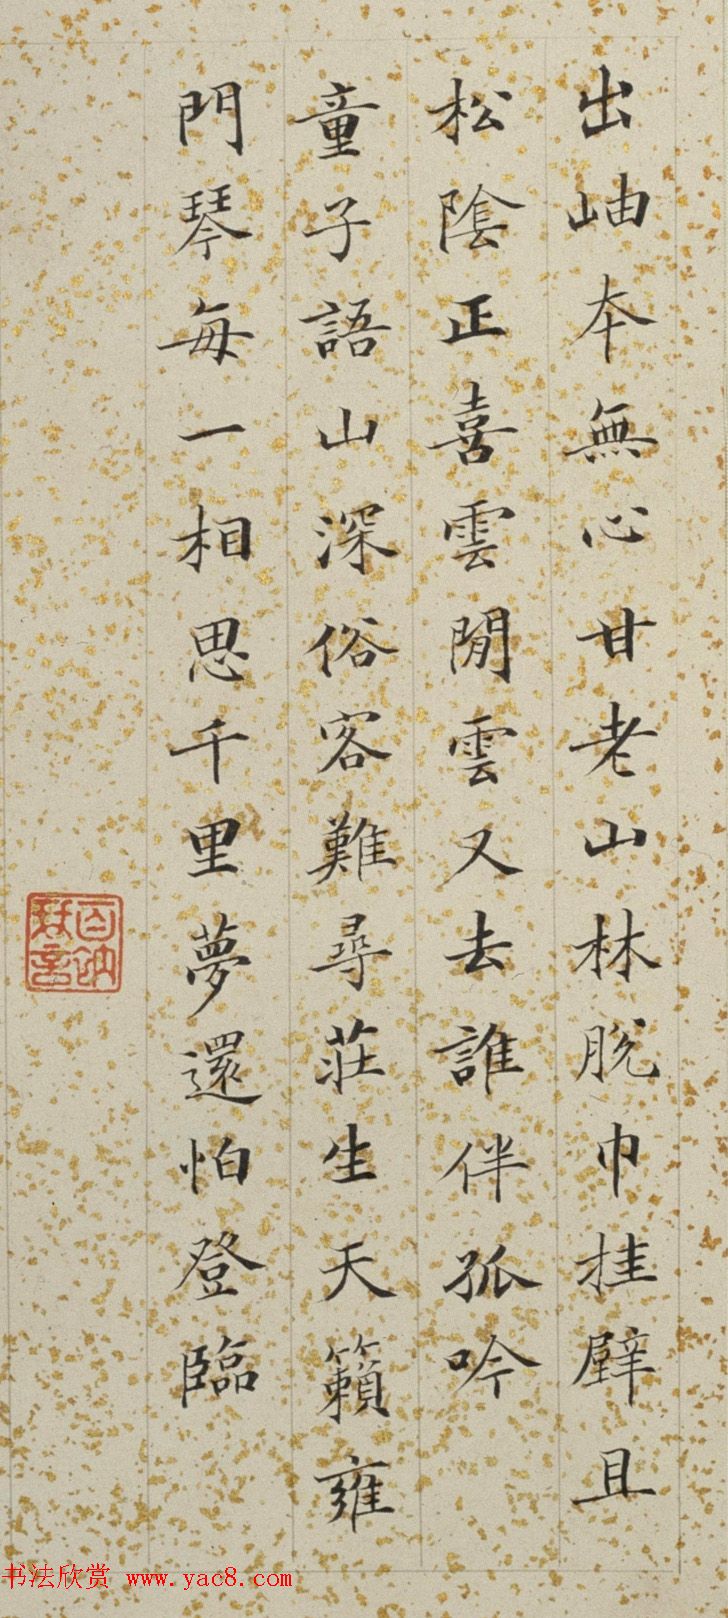 出岫本無心甘老山林脫巾挂壁且
松陰正喜雲閒雲又去誰伴孤吟
童子語山深俗客難尋莊生天籟雍
門琴每一相思千里夢還怕登臨
书法欣赏 www.yac8.com